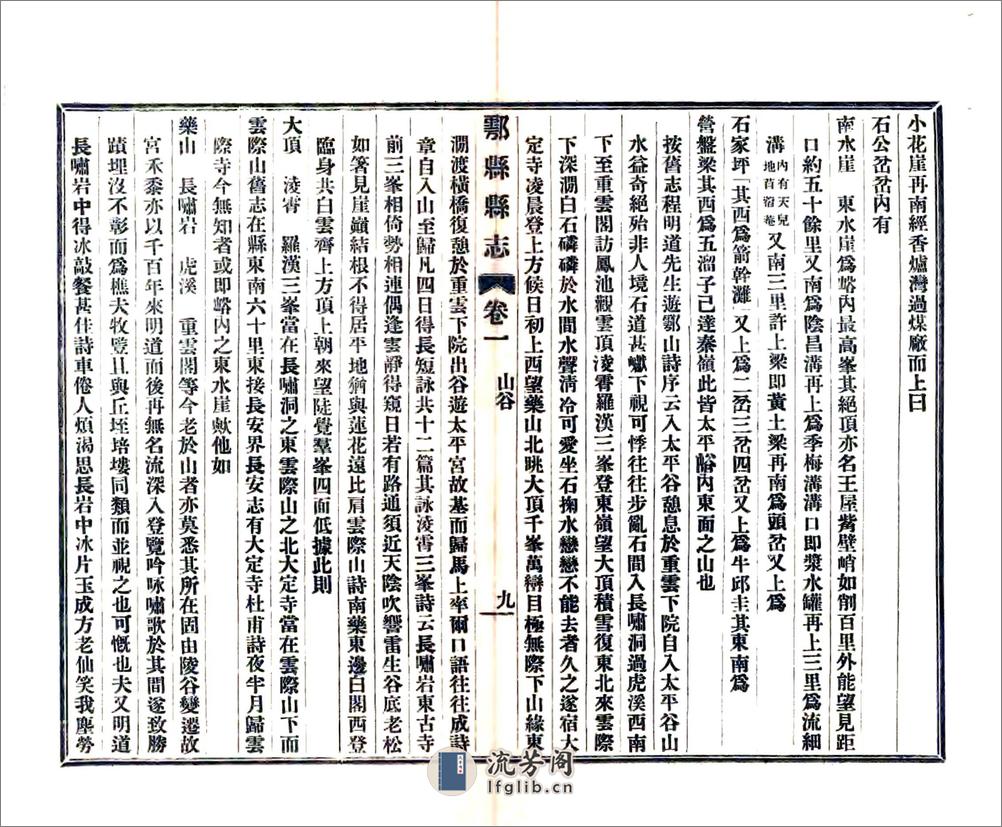 小花崖再南經香爐灣過煤廠而上曰
石公岔岔內有
南水崖　東水崖爲峪內最高峯其絕頂亦名王屋觜壁峭如削百里外能望見距
口約五十餘里又南爲陰昌溝再上爲季梅溝溝口即漿水罐再上三里爲流細
溝內有天兒地苜蓿菴又南三里許上梁即黃土梁再南爲頭岔又上爲
石家坪其西爲箭幹灘又上爲二岔三岔四岔又上爲牛邱圭其東南爲
營盤梁其西爲五溜子已達秦嶺此皆太平峪內東面之山也
按舊志程明道先生遊鄠山詩序云入太平谷憩息於重雲下院自入太平谷山
水益奇絕殆非人境石道甚巇下視可悸往往步亂石間入長嘯洞過虎溪西南
下至重雲閣訪鳳池觀雲頂淩霄羅漢三峯登東嶺望大頂積雪復東北來雲際
下深澗白石磷磷於水間水聲淸冷可愛坐石掬水戀戀不能去者久之遂宿大
定寺凌晨登上方候日初上西望藥山北眺大頂千峯萬巒目極無際下山緣東
鄠縣縣志　卷一　山谷　九
澗渡橫橋復憩於重雲下院出谷遊太平宮故基而歸馬上率爾口語往往成詩
章自入山至歸凡四日得長短詠共十二篇其詠淩霄三峯詩云長嘯岩東古寺
前三峯相倚勢相連偶逢雲靜得窺日若有路通須近天陰吹響雷生谷底老松
如箸見崖巔結根不得居平地猶與蓮花遠比肩雲際山詩南藥東邊白閣西登
臨身共白雲齊上方頂上朝來望陡覺羣峯四面低據此則
大頂　淩霄　羅漢三峯當在長嘯洞之東雲際山之北大定寺當在雲際山下而
雲際山舊志在縣東南六十里東接長安界長安志有大定寺杜甫詩夜半月歸雲
際寺今無知者或即峪內之東水崖歟他如
藥山　長嘯岩　虎溪　重雲閣等今老於山者亦莫悉其所在固由陵谷變遷故
宮禾黍亦以千百年來明道而後再無名流深入登覽吟咏嘯歌於其間遂致勝
蹟埋沒不彰而爲樵夫牧豎且與丘垤培塿同類而並視之也可慨也夫又明道
長嘯岩中得冰敲餐甚佳詩車倦人煩渴思長岩中冰片玉成方老仙笑我塵勞
流芳閣
lfglib.cn